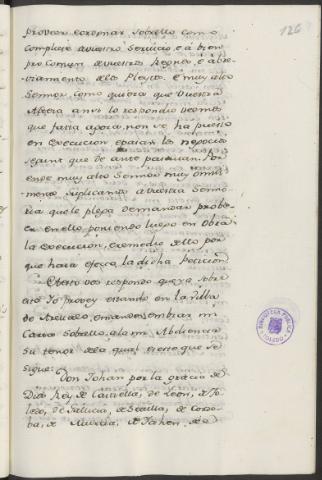 126
proveer e ordenar sobrello como
compliese a vuestro servicio, e á bien
pro comun de vuestros Regnos e abre-
viamento de los Pleytos. E muy alto
Sennor como quiera que Vuestra
Alteza ansi lo respondió vemos
que fasta agora non se ha puesto
en execucion e pasan los negocios
segunt que de ante pasavan. Por
ende muy alto Sennor muy omil-
mente suplicamos a vuestra Senno-
ria que le plega demandar probe-
er en ello poniendo luego en obra
la execucion, e remedio dello por
que haia efecto la dicha Peticion
A esto vos respondo que ya sobre
esto Yo provey estando en la Villa
de Arevalo, e mandé embiar mi
Carta sobrello, a la mi Abdiencia
su tenor dela qual es esto que se
sigue:
Don Johan por la gracia de
Dios Rey de Castiella, de Leon, de To-
ledo, de Gallicia, de Sevilla, de Cordo-
ba, de Murcia, de Jahen, de
BIBLIOTECA PUBLICA
TOLEDO